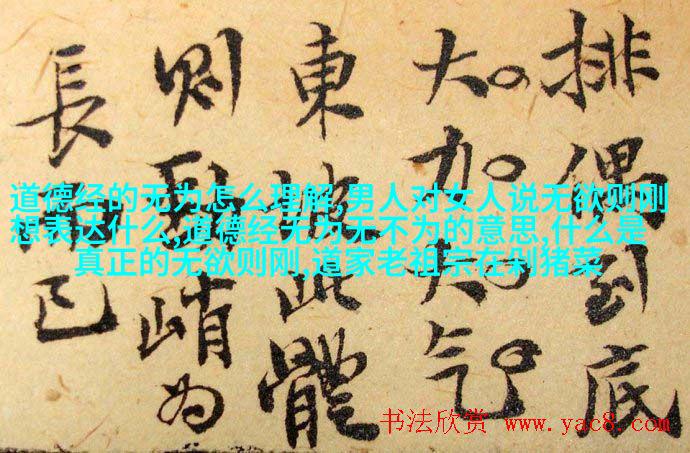 排偶到底
大加大气
東坡此體
則峭為
長已
道德经的无为怎么理解,男人对女人说无欲则刚
想表达什么,道德经无为无不为的意思,什么是
真正的无欲则刚,道家老祖宗在剁猪菜
书法欣赏 www.yac8.com